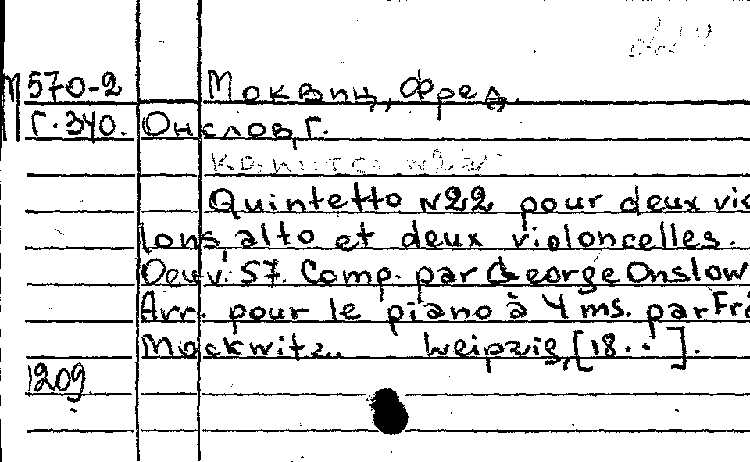 М 570-2 Моквиц, Фред.
Г. 340. Онслов, Г.
Quintetto N22 pour deux vio
lons, alto et deux violoncelles.
Oeuv. 57. Comp. par George Onslow
Arr. pour le piano à 4 ms. par Fré
Mockwitz. Leipzig, [18..].
1209